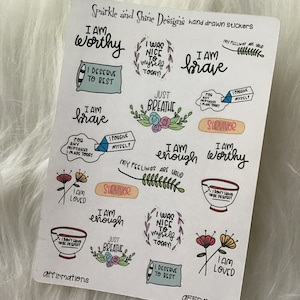 Sparkle and Shine Designs hand drawn stickers
I AM
worthy
I WAS
NICE
TO
myself
TODAY
I AM
brave
MY FEELINGS ARE VALID
I DESERVE
TO REST
I AM
brave
JUST
BREATHE
FOR
ANY
MISTAKES
MADE TODAY
I FORGIVE
MYSELF
SURVIVOR
FOR
ANY
MISTAKES
MADE TODAY
I FORGIVE
MYSELF
MY FEELINGS ARE VALID
I AM
enough
I AM
worthy
I AM
LOVED
SURVIVOR
I DON'T HAVE
TO BE PERFECT
I AM
enough
I WAS
NICE
TO
myself
TODAY
I DON'T HAVE
TO BE PERFECT
JUST
BREATHE
I DESERVE
TO REST
I AM
LOVED
affirmations